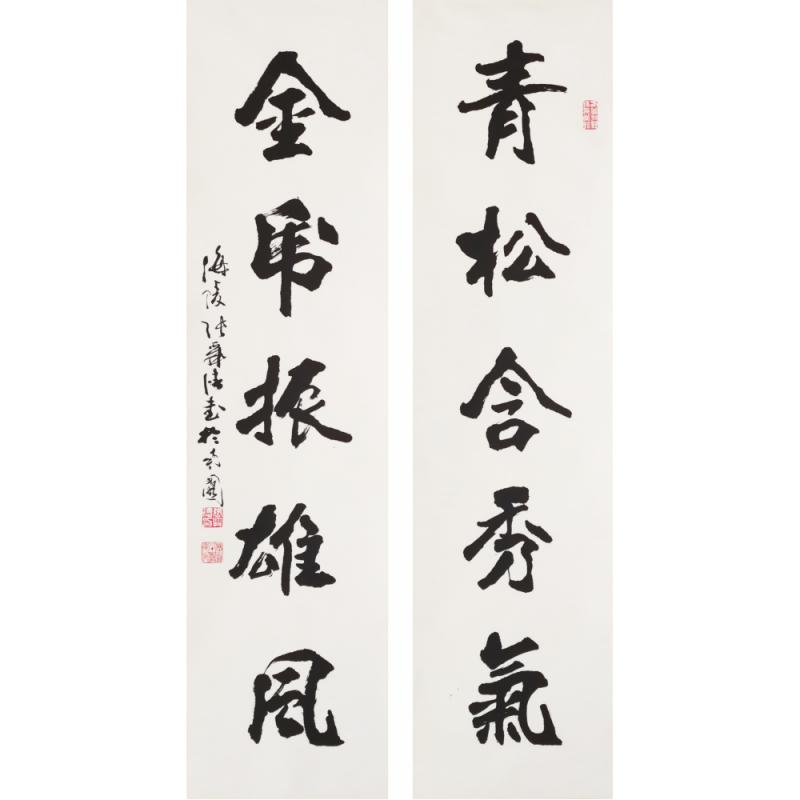 青松含秀氣
金虎振雄風
海陵張 書於